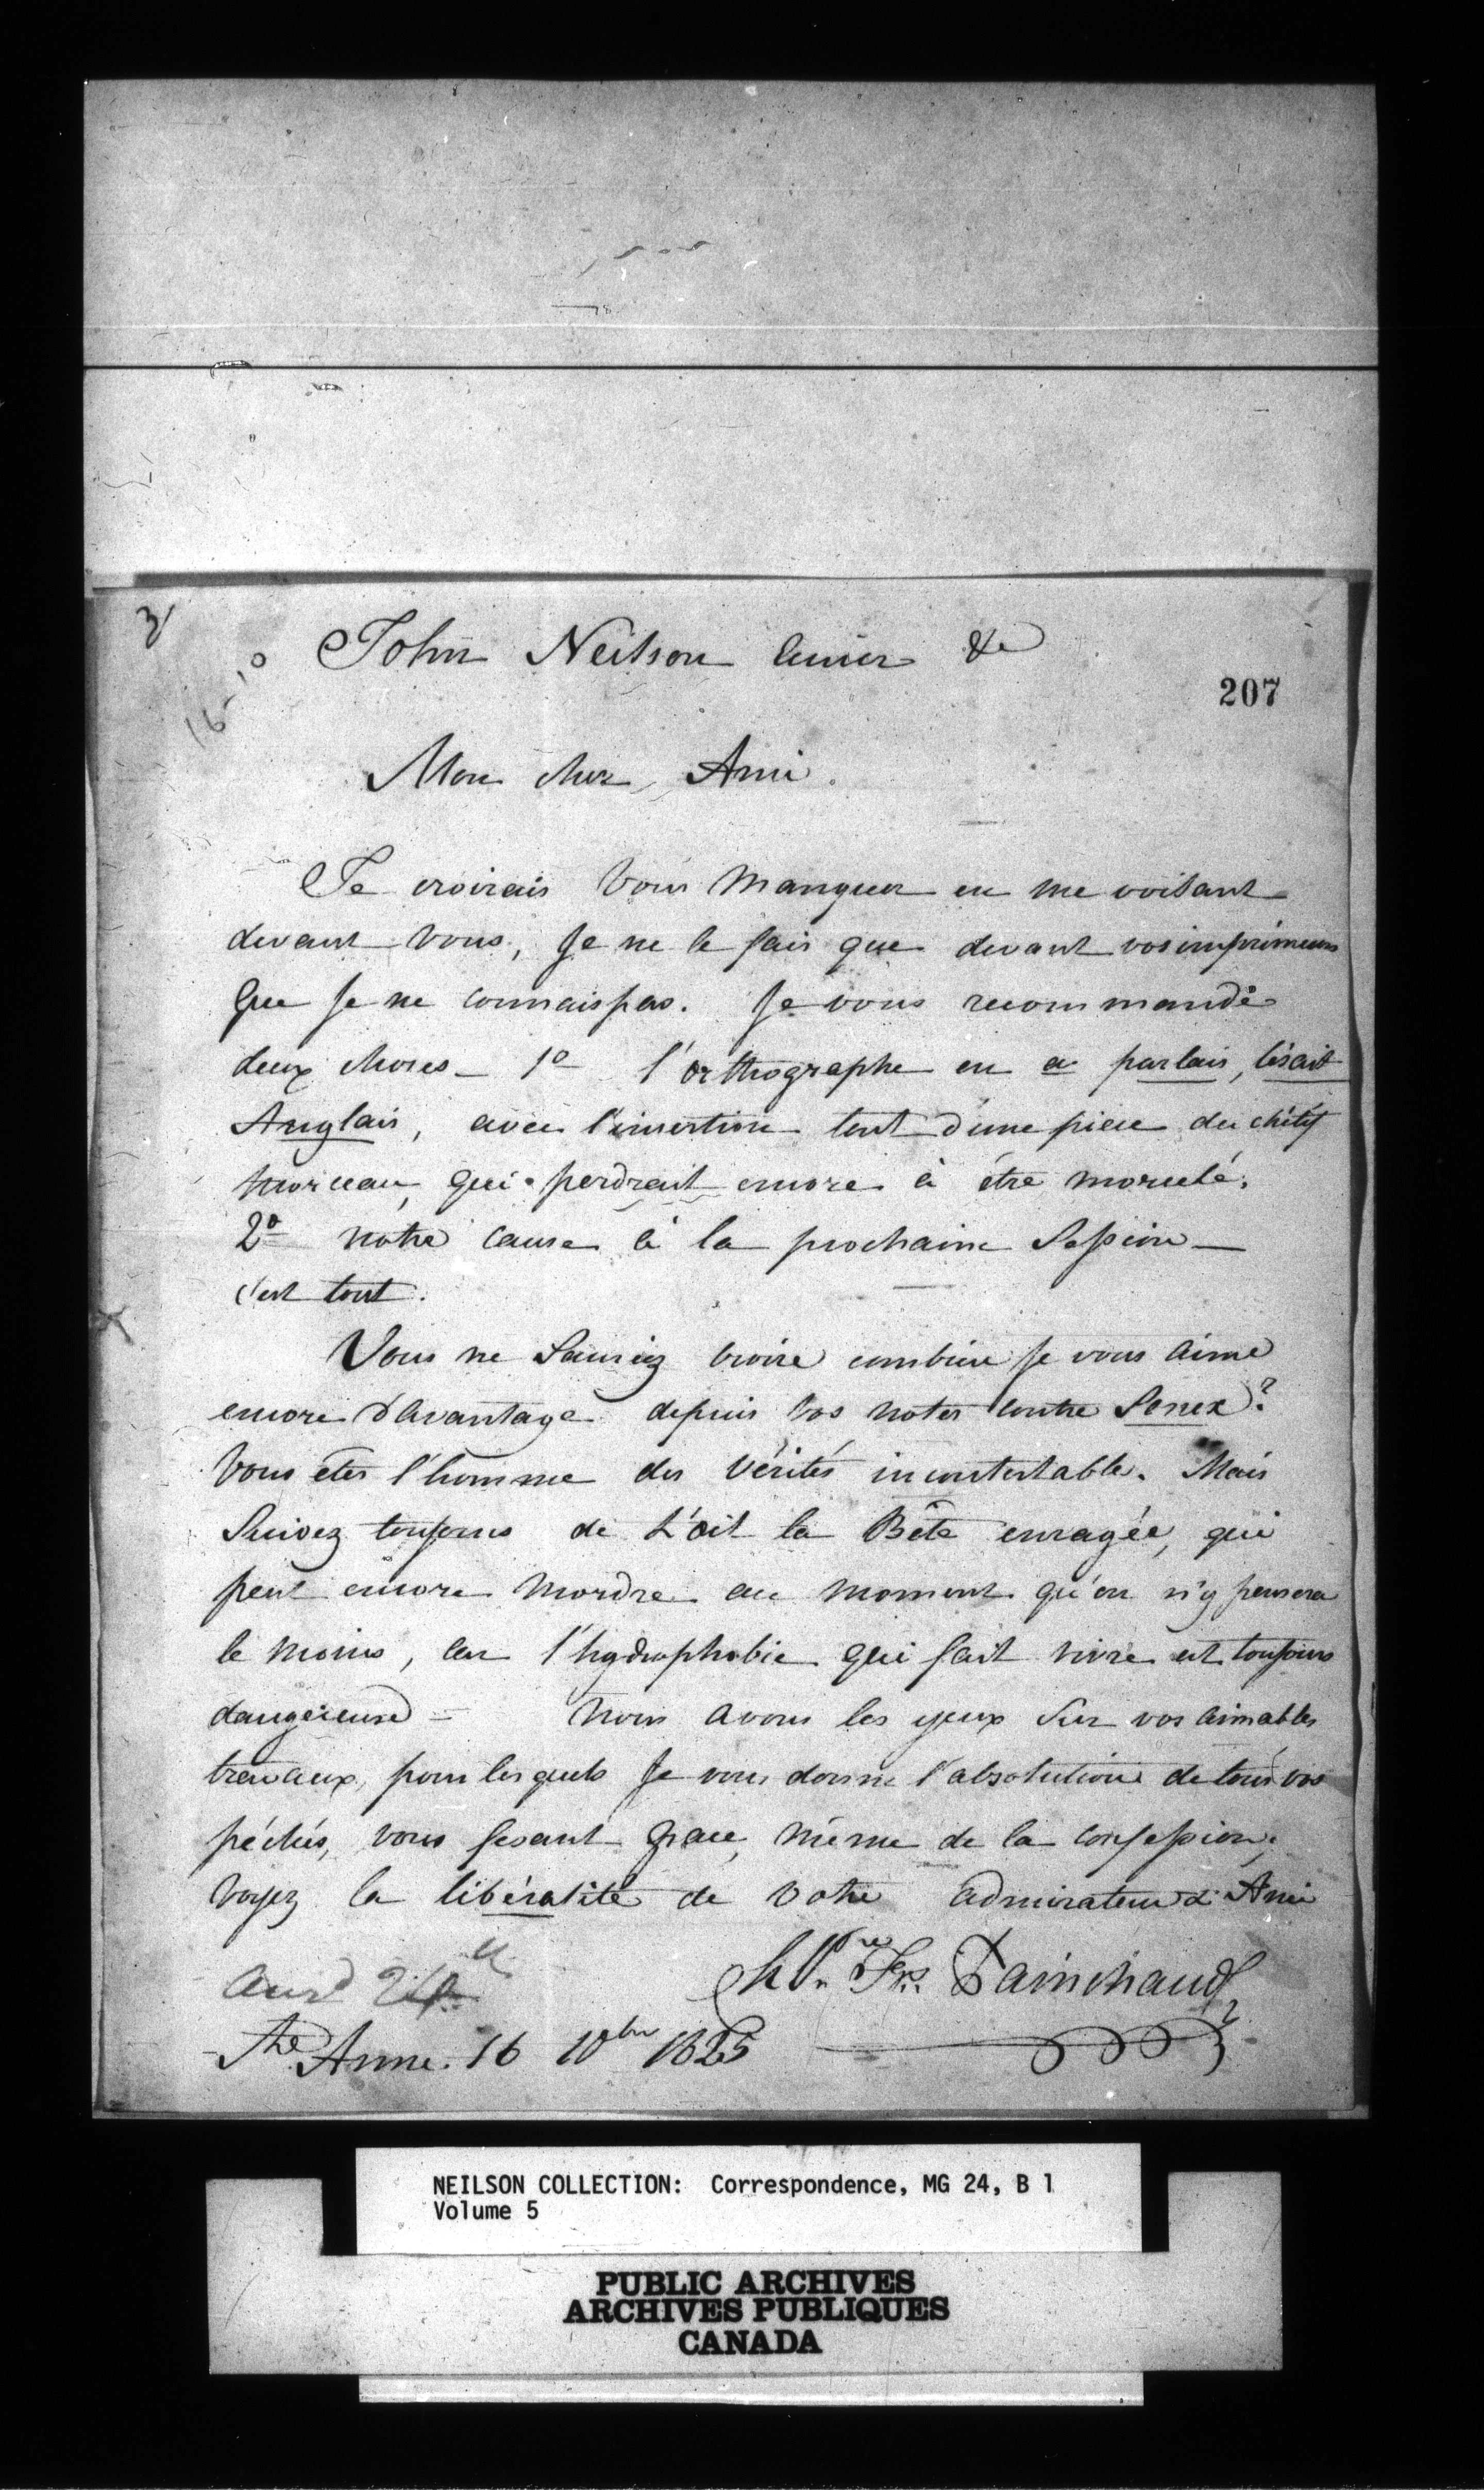 3/
16-10
John Neilson Ecuier &c
207
Mon cher Ami.
Je croirais vous manquer en me voilant
devant vous, Je ne le fais que devant vos imprimeurs
que Je ne connais pas. Je vous recommande
deux choses_ 1º l'orthographe en a parlais, lisait
Anglais, avec l'insertion tout d'une piece du chétif
morceau, qui perdrait encore à être morcelé.
2º notre cause à la prochaine Session_
c'est tout.
Vous ne sauriez croire combien Je vous aime
encore d'avantage depuis vos notes contre Senex?
Vous êtes l'homme des vérités incontestable. Mais
Suivez toujours de L'oil la Bête enragée, qui
peut encore mordre au moment qu'on n'y pensera
le moins, car l'hydrophobie qui fait vivre est toujours
dangereuse = Nous avons les yeux sur vos aimables
travaux, pour lesquels Je vous donne l'absolution de tous vos
péchés, vous fesant grace, même de la confession.
voyez la libéralité de votre admirateur & Ami
Ch. Frs. Painchaud Ptre
Ansd
Ste Anne. 16 10bre 1825
NEILSON COLLECTION: Correspondence, MG 24, B 1
Volume 5
PUBLIC ARCHIVES
ARCHIVES PUBLIQUES
CANADA